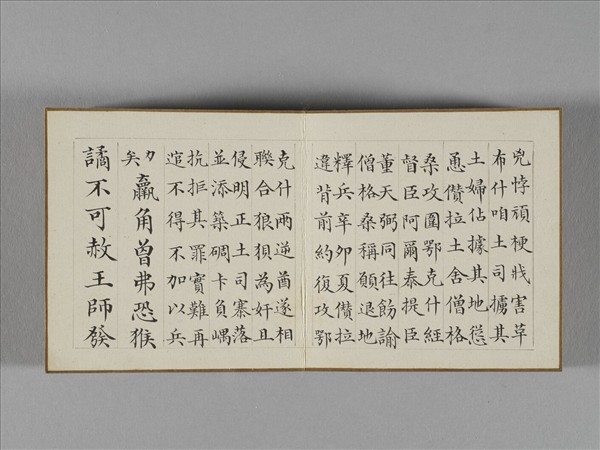 兇悖頑梗戕害草
布什咱土司擄其
土婦佔據其地慫
恿儹拉土舍僧格
桑攻圍鄂克什經
督臣阿爾泰提臣
董天弼同往飭諭
僧格桑稱願退地
釋兵辛卯夏儹拉
違背前約復攻鄂
克什兩逆酋遂相
聯合狼狽為奸且
侵明正土司寨落
並添築碉卡負嵎
抗拒其罪實難再
逭不得不加以兵
力
矣
羸角曾弗恐猴
譎不可赦王師發